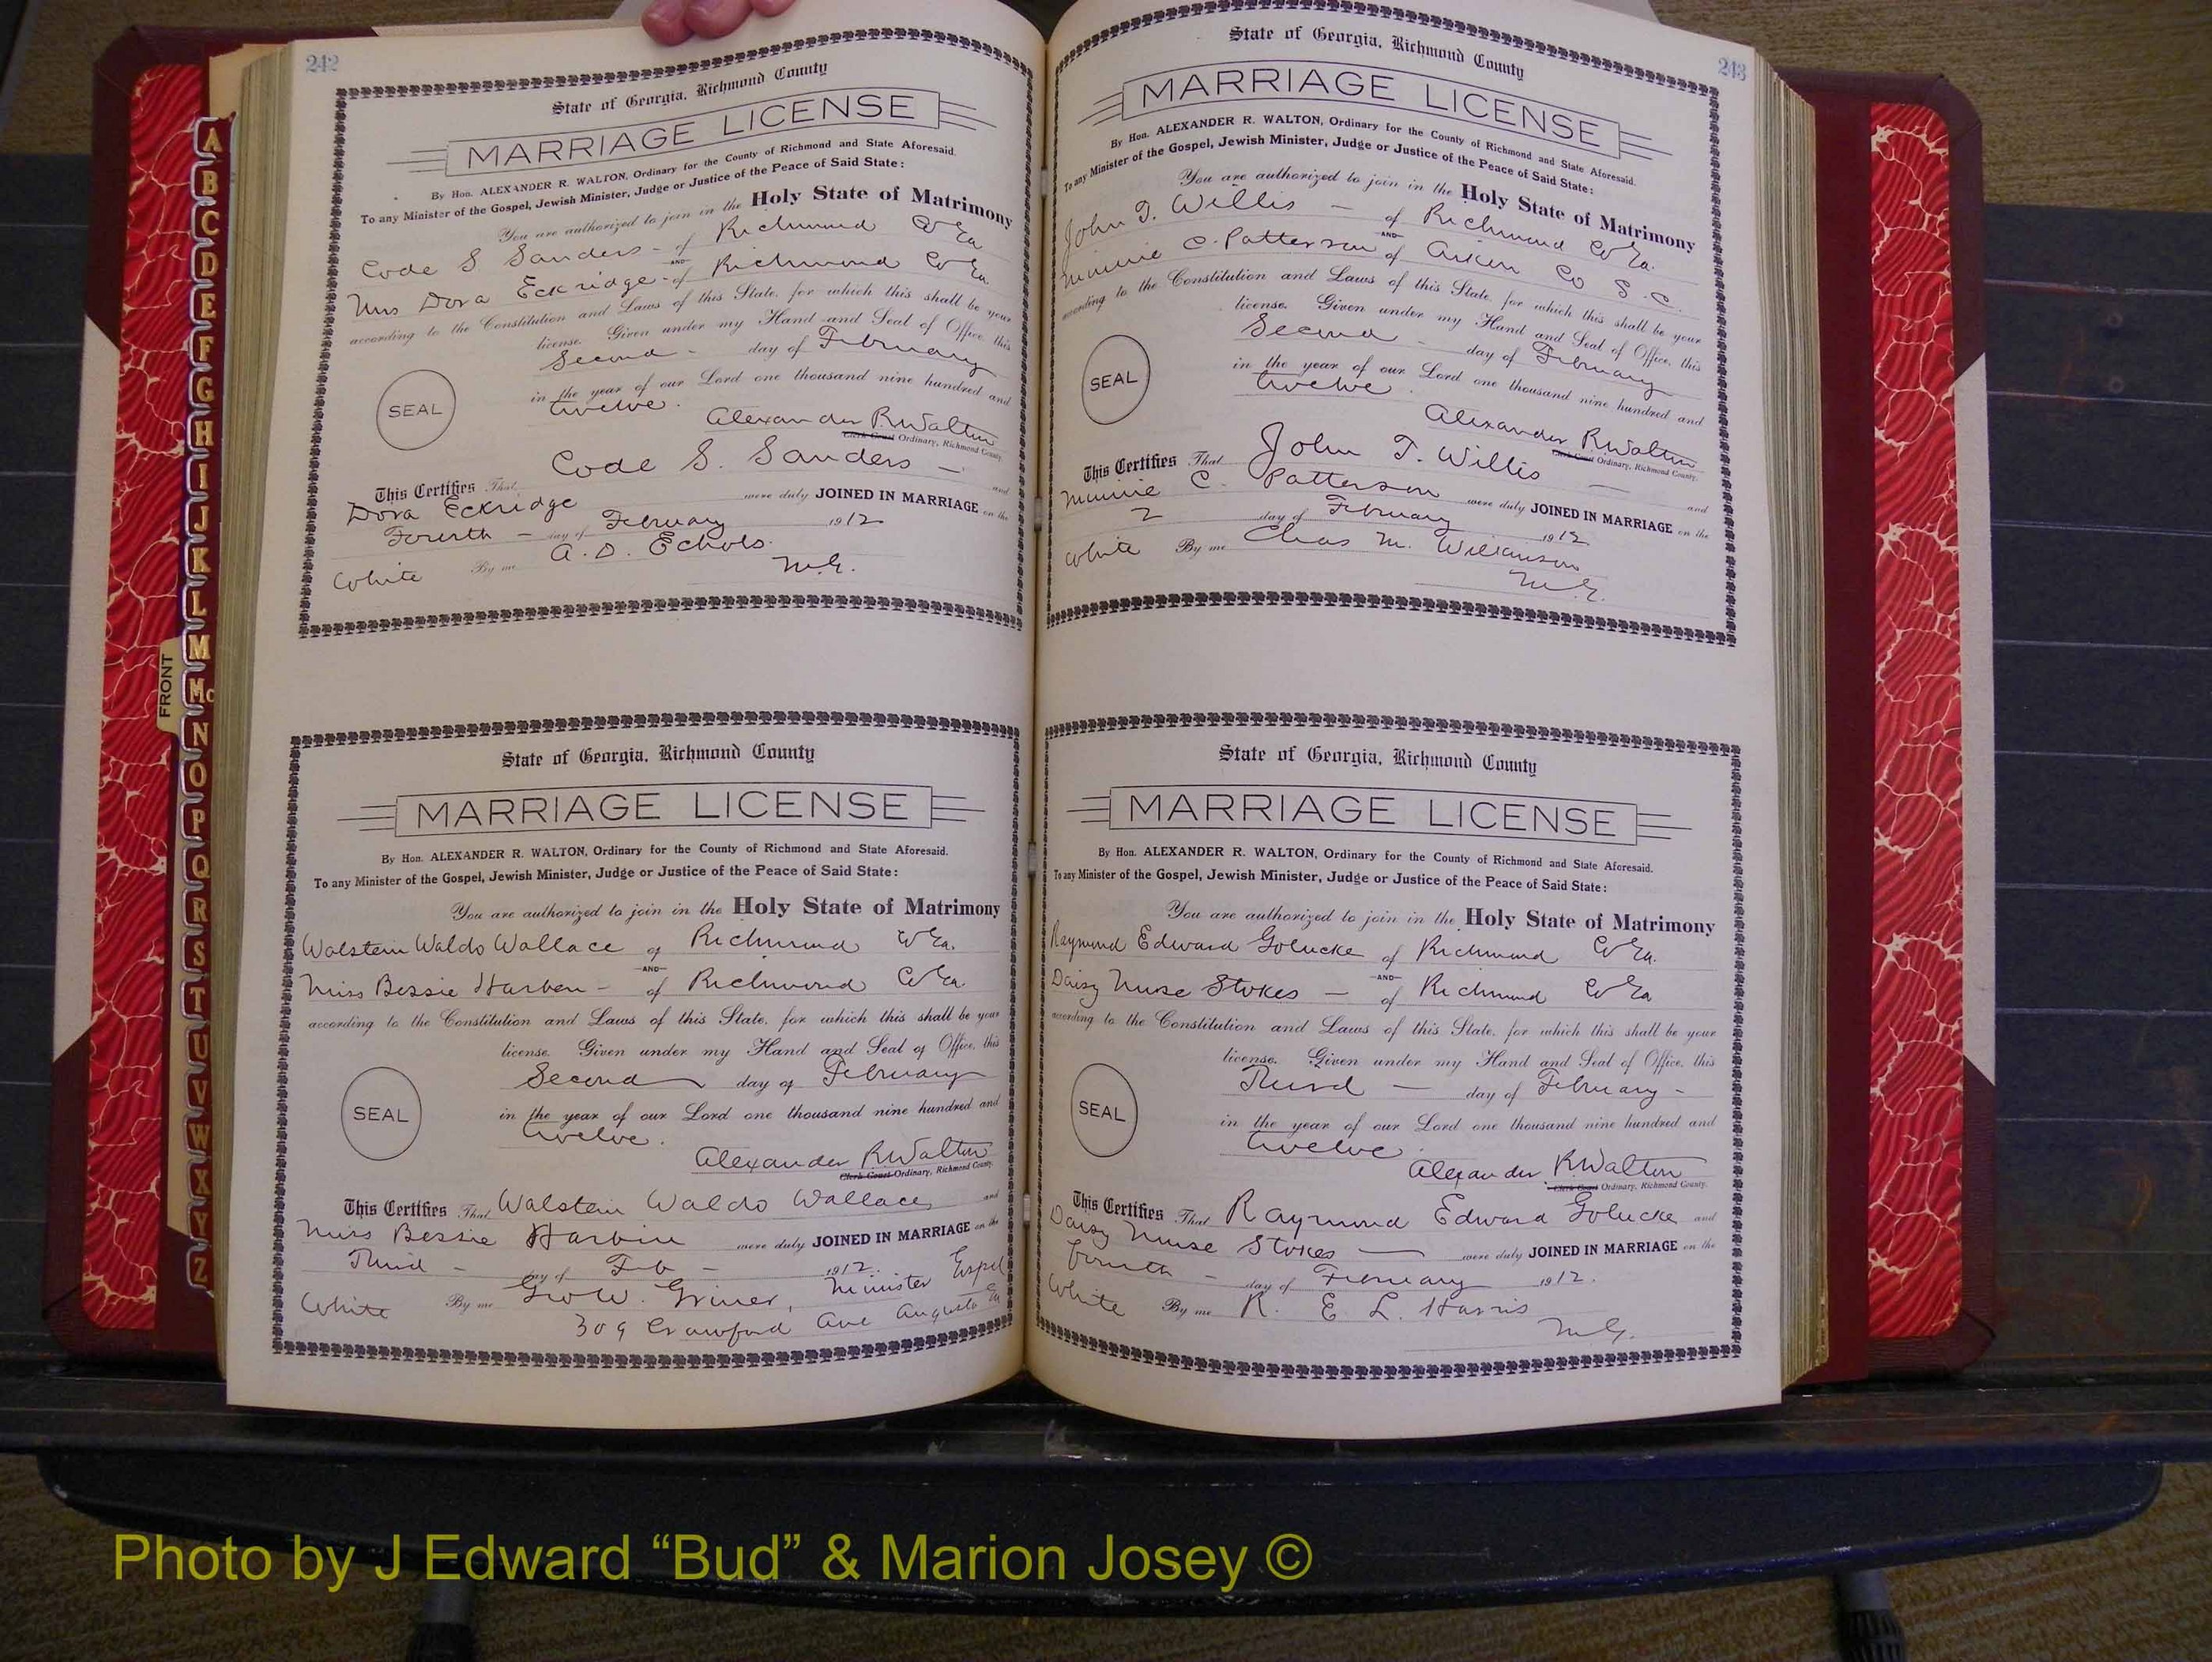 242
State of Georgia, Richmond County
MARRIAGE LICENSE
By Hon. ALEXANDER R. WALTON, Ordinary for the County of Richmond and State Aforesaid.
To any Minister of the Gospel, Jewish Minister, Judge or Justice of the Peace of Said State:
You are authorized to join in the Holy State of Matrimony
Code S Sanders - of Richmond Co Ga
AND
Mrs Dora Eckridge - of Richmond Co Ga.
according to the Constitution and Laws of this State, for which this shall be your
license. Given under my Hand and Seal of Office, this
Second - day of February
SEAL
in the year of our Lord one thousand nine hundred and
twelve.
Alexander R Walton
Clerk Court Ordinary, Richmond County.
This Certifies That Code S. Sanders — and
Dora Eckridge were duly JOINED IN MARRIAGE on the
Fourth - day of February 1912
White By me A. D. Echols.
M.G.
State of Georgia, Richmond County
MARRIAGE LICENSE
By Hon. ALEXANDER R. WALTON, Ordinary for the County of Richmond and State Aforesaid.
To any Minister of the Gospel, Jewish Minister, Judge or Justice of the Peace of Said State:
You are authorized to join in the Holy State of Matrimony
Walstein Waldo Wallace of Richmond Co Ga.
AND
Miss Bessie Harben - of Richmond Co Ga.
according to the Constitution and Laws of this State, for which this shall be your
license. Given under my Hand and Seal of Office, this
Second day of February
SEAL
in the year of our Lord one thousand nine hundred and
twelve.
Alexander R Walton
Clerk Court Ordinary, Richmond County.
This Certifies That Walstein Waldo Wallace and
Miss Bessie Harbin were duly JOINED IN MARRIAGE on the
Third - day of Feb - 1912.
White By me Geo W. Griner, Minister Gospel
309 Crawford Ave Augusta Ga
243
State of Georgia, Richmond County
MARRIAGE LICENSE
By Hon. ALEXANDER R. WALTON, Ordinary for the County of Richmond and State Aforesaid.
To any Minister of the Gospel, Jewish Minister, Judge or Justice of the Peace of Said State:
You are authorized to join in the Holy State of Matrimony
John T. Willis - of Richmond Co Ga.
AND
Minnie C. Patterson of Aiken Co S.C.
according to the Constitution and Laws of this State, for which this shall be your
license. Given under my Hand and Seal of Office, this
Second - day of February
SEAL
in the year of our Lord one thousand nine hundred and
twelve.
Alexander R Walton
Clerk Court Ordinary, Richmond County.
This Certifies That John T. Willis — and
Minnie C. Patterson were duly JOINED IN MARRIAGE on the
2 day of February 1912
White By me Chas M. Wilkinson
M.G.
State of Georgia, Richmond County
MARRIAGE LICENSE
By Hon. ALEXANDER R. WALTON, Ordinary for the County of Richmond and State Aforesaid.
To any Minister of the Gospel, Jewish Minister, Judge or Justice of the Peace of Said State:
You are authorized to join in the Holy State of Matrimony
Raymond Edward Golucke of Richmond Co Ga.
AND
Daisy Muse Stokes — of Richmond Co Ga
according to the Constitution and Laws of this State, for which this shall be your
license. Given under my Hand and Seal of Office, this
Third — day of February -
SEAL
in the year of our Lord one thousand nine hundred and
twelve.
Alexander R Walton
Clerk Court Ordinary, Richmond County.
This Certifies That Raymond Edward Golucke and
Daisy Muse Stokes — were duly JOINED IN MARRIAGE on the
fourth - day of February 1912.
White By me R. E. L. Harris
M.G.
FRONT
A
B
C
D
E
F
G
H
I
J
K
L
M
Mc
N
O
P
Q
R
S
T
U
V
W
X
Y
Z
Photo by J Edward “Bud” & Marion Josey ©